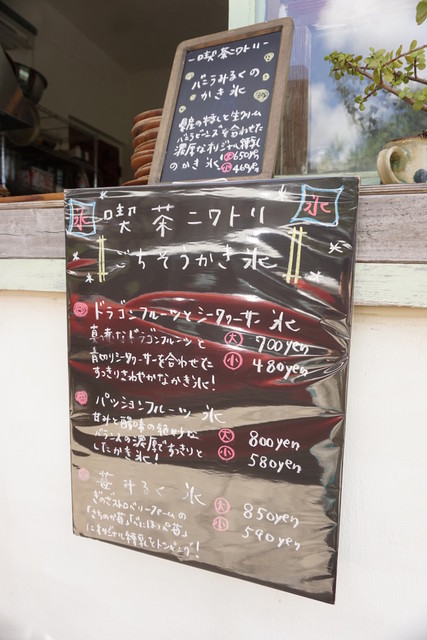 喫茶ニワトリ
バニラみるくの
かき氷
県産の卵と生クリーム
バニラビーンズを合わせた
濃厚なオリジナル練乳
のかき氷 大650yen
小460yen
氷 喫茶ニワトリ 氷
ごちそうかき氷
ドラゴンフルーツとシークワーサー 氷
真赤なドラゴンフルーツと 大 700yen
青切りシークワーサーを合わせた 小 480yen
すっきりさわやかなかき氷!
パッションフルーツ 氷
甘みと酸味の絶妙な 大 800yen
バランスの濃厚ですっきりと 小 580yen
したかき氷!
苺みるく 氷
ぎのざストロベリーファームの 大 850yen
「さちのか苺」「べにほっぺ苺」 小 590yen
にオリジナル練乳をトッピング!